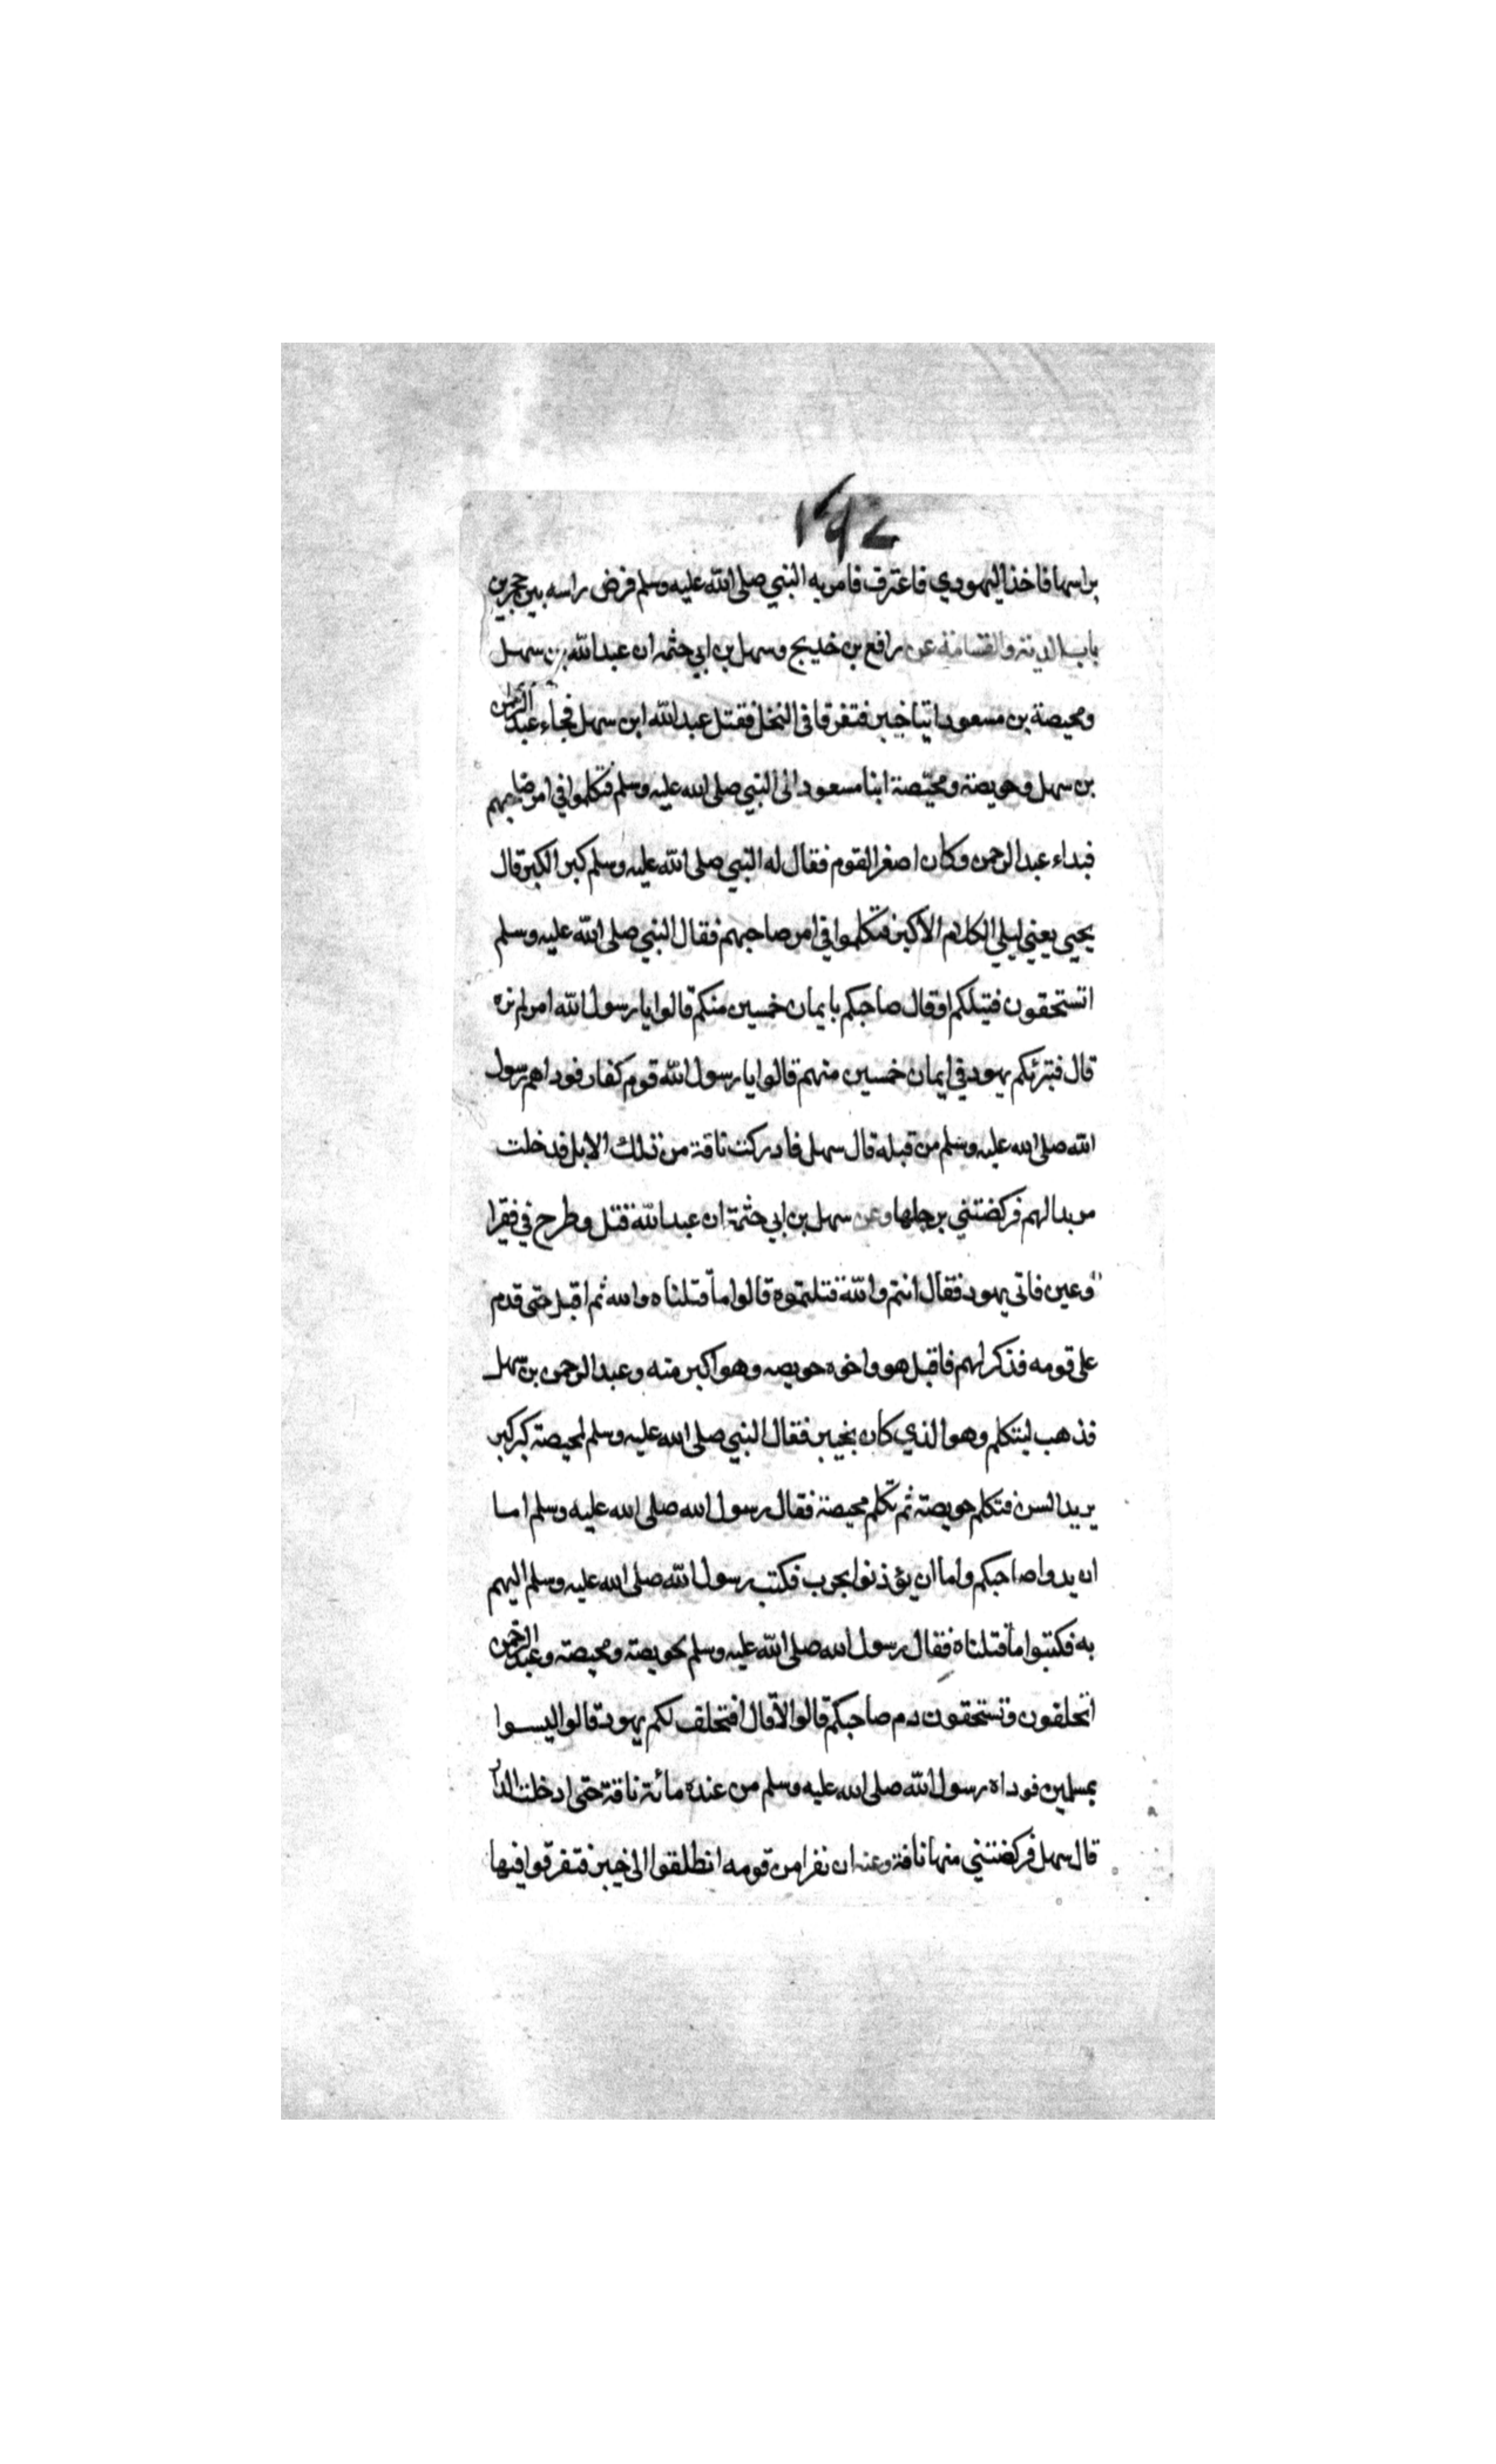 براسها فاخذ اليهودي فاعترف فامر به النبي صلى الله عليه وسلم فرض راسه بين حجرين
باب الدية والقسامة عن رافع بن خديج وسهل بن ابي حثمه ان عبد الله بن سهل
ومحيصة بن مسعود اتيا خيبر فتفرقا في النخل فقتل عبد الله ابن سهل فجاء عبد الرحمن
بن سهل وحويصة ومحيصة ابنا مسعود الى النبي صلى الله عليه وسلم فتكلموا في امر صاحبهم
فبداء عبد الرحمن وكان اصغر القوم فقال له النبي صلى الله عليه وسلم كبر الكبر قال
يحيى يعني ليلي الكلام الاكبر فتكلموا في امر صاحبهم فقال النبي صلى الله عليه وسلم
اتستحقون قتيلكم او قال صاحبكم بايمان خمسين منكم قالوا يا رسول الله امر لم نره
قال فتبرئكم يهود في ايمان خمسين منهم قالوا يا رسول الله قوم كفار فوداهم رسول
الله صلى الله عليه وسلم من قبله قال سهل فادركت ناقة من تلك الابل فدخلت
مربدا لهم فركضتني برجلها وعن سهل بن ابي حثمة ان عبد الله قتل وطرح في فقير ا
وعين فاتى يهود فقال انتم والله قتلتموه قالوا ما قتلناه والله ثم اقبل حتى قدم
على قومه فذكر لهم فاقبل هو واخوه حويصه وهو اكبر منه وعبد الرحمن بن سهل
فذهب ليتكلم وهو الذي كان بخيبر فقال النبي صلى الله عليه وسلم لمحيصة كبر كبر
يريد السن فتكلم حويصة ثم تكلم محيصة فقال رسول الله صلى الله عليه وسلم اما
ان يدوا صاحبكم واما ان يؤذنوا بحرب فكتب رسول الله صلى الله عليه وسلم اليهم
به فكتبوا ما قتلناه فقال رسول الله صلى الله عليه وسلم لحويصة ومحيصة وعبد الرحمن
اتحلفون وتستحقون دم صاحبكم قالوا لا قال افتحلف لكم يهود قالوا ليسوا
بمسلمين فوداه رسول الله صلى الله عليه وسلم من عنده مائة ناقة حتى ادخلت الدار
قال سهل فركضتني منها ناقة وعنه ان نفرا من قومه انطلقوا الى خيبر فتفرقوا فيها